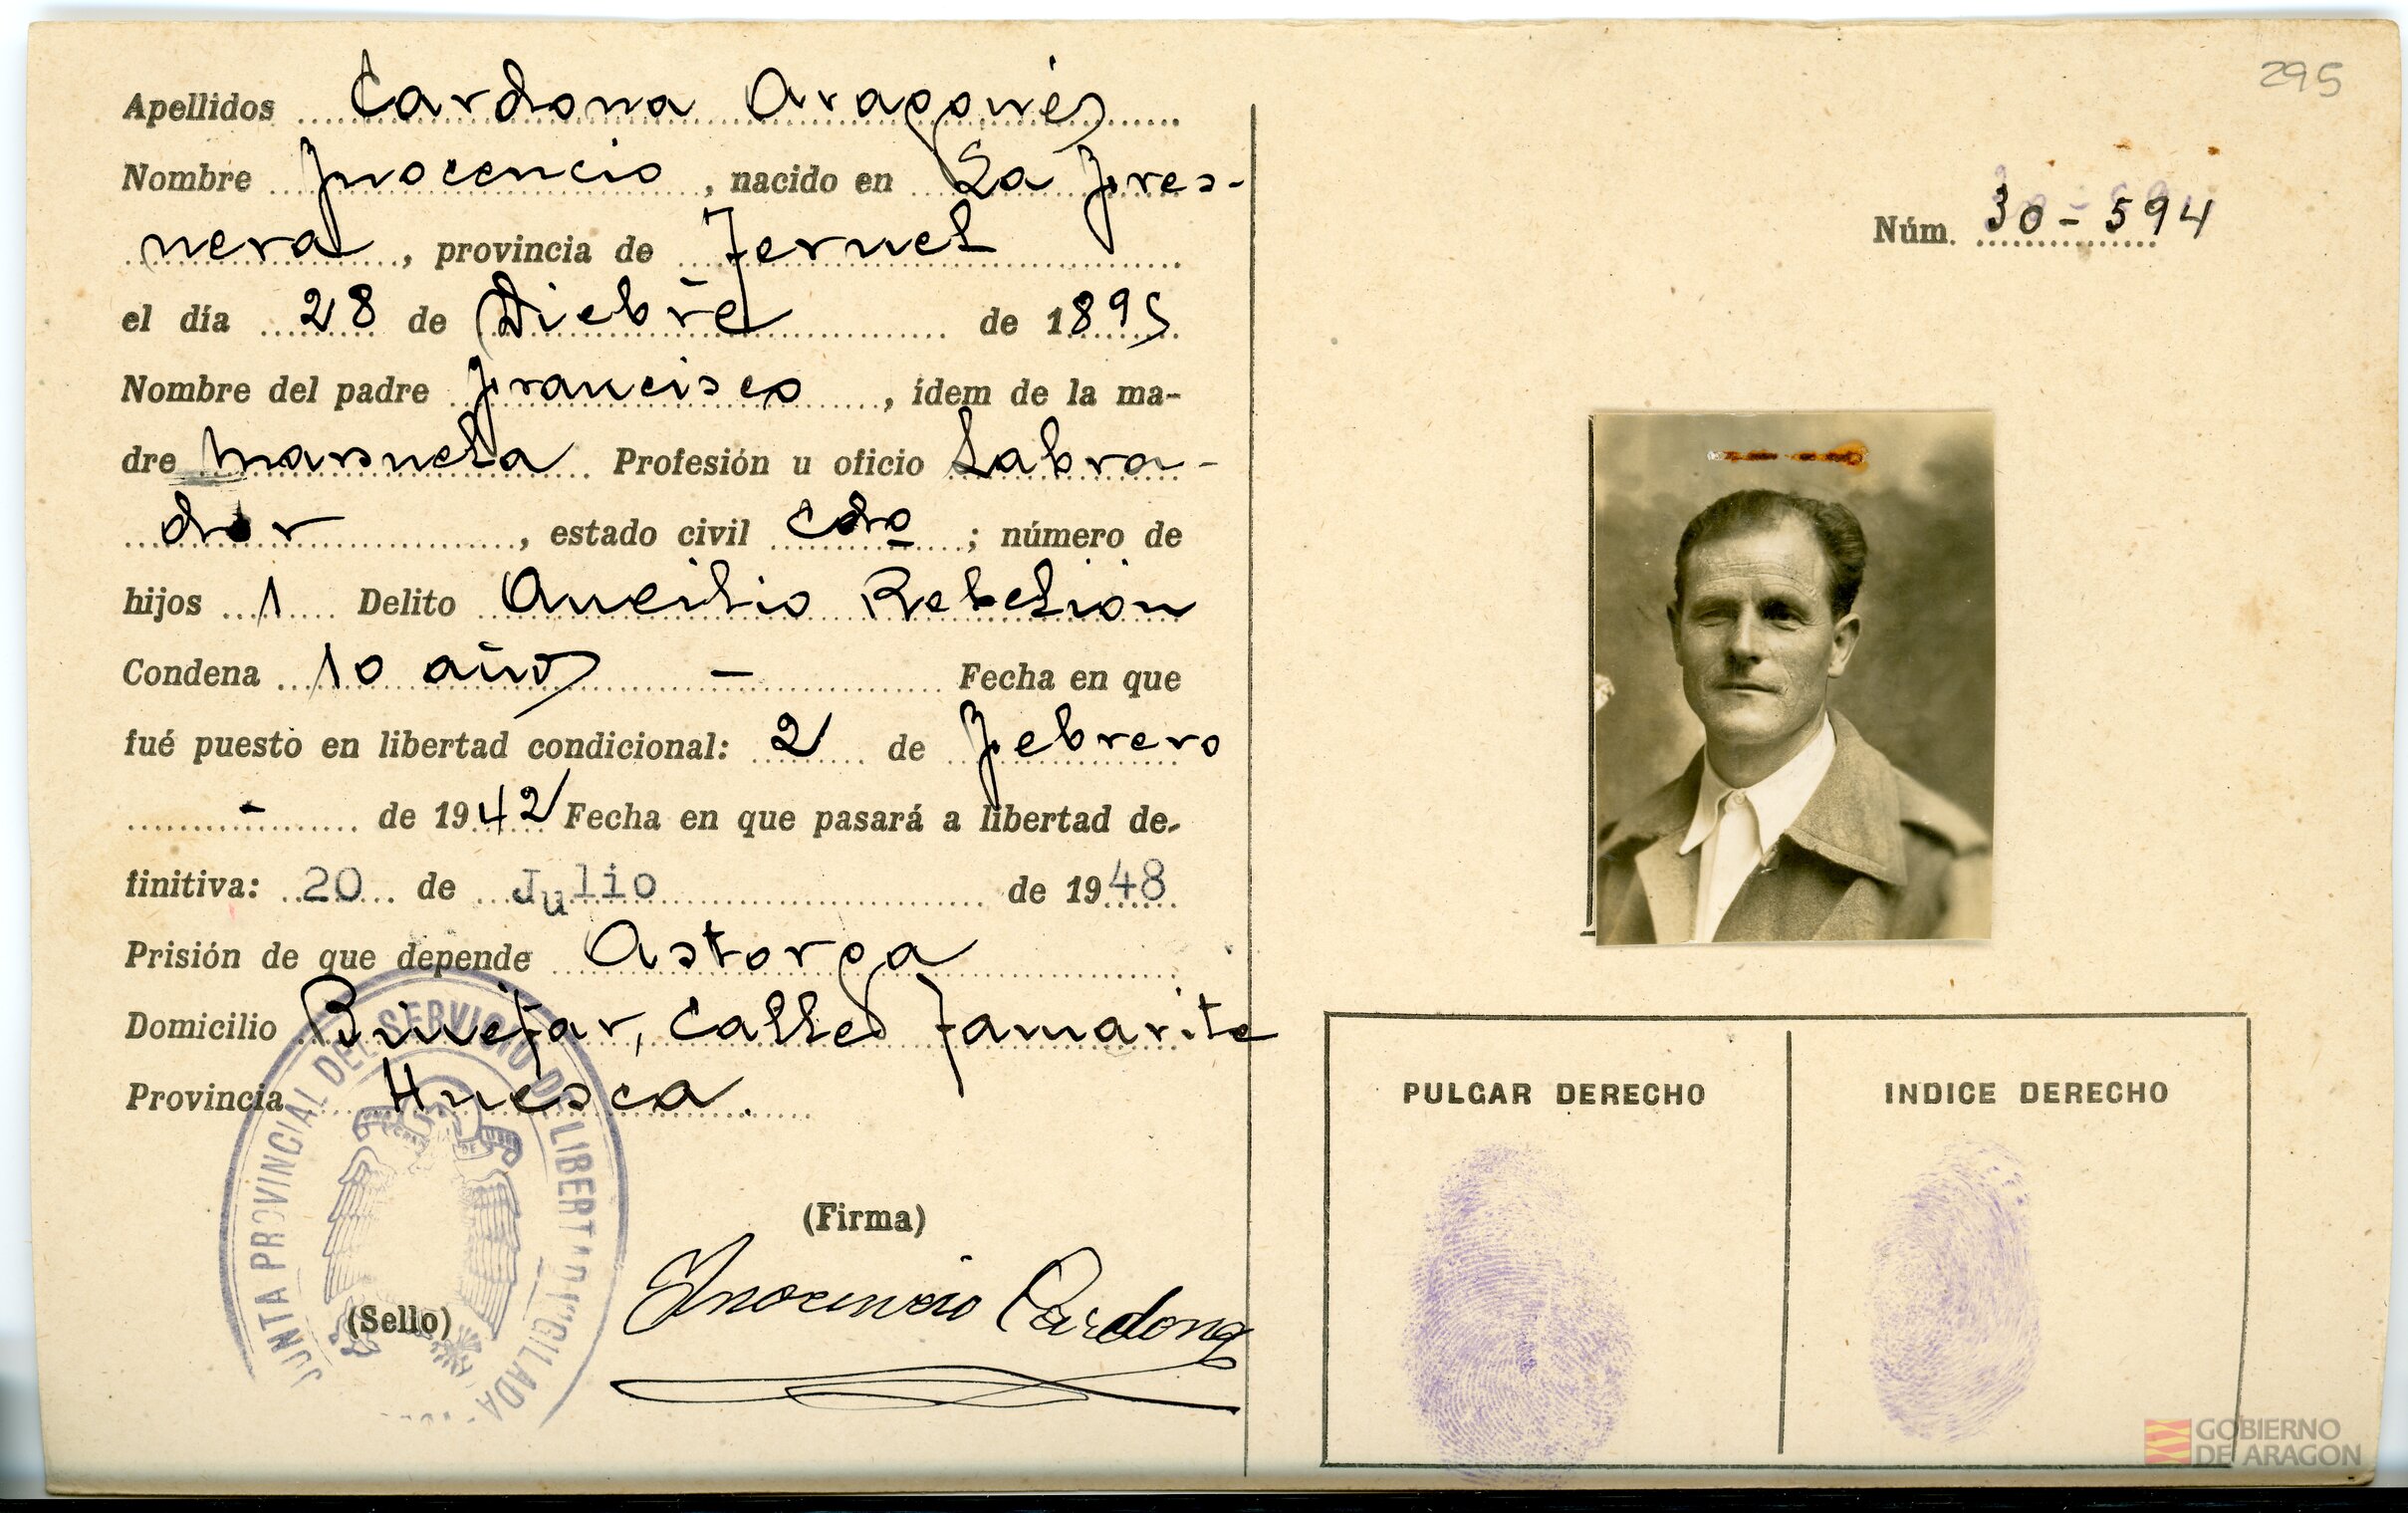 295
Apellidos Cardona Aragonés
Nombre Inocencio, nacido en La Fres-
nera, provincia de Teruel
el día 28 de Dicbre de 1895
Nombre del padre Francisco, ídem de la ma-
dre Manuela Profesión u oficio Labra-
dor, estado civil cdo; número de
hijos 1 Delito Auxilio Rebelión
Condena 10 años - Fecha en que
fué puesto en libertad condicional: 2 de Febrero
- de 1942 Fecha en que pasará a libertad de-
finitiva: 20 de Julio de 1948
Prisión de que depende Astorga
Domicilio Binefar, Calle Tamarite
Provincia Huesca.
(Firma)
Inocencio Cardona
(Sello)
JUNTA PROVINCIAL DEL SERVICIO DE LIBERTAD VIGILADA
Núm. 30-594
PULGAR DERECHO
INDICE DERECHO
GOBIERNO
DE ARAGON